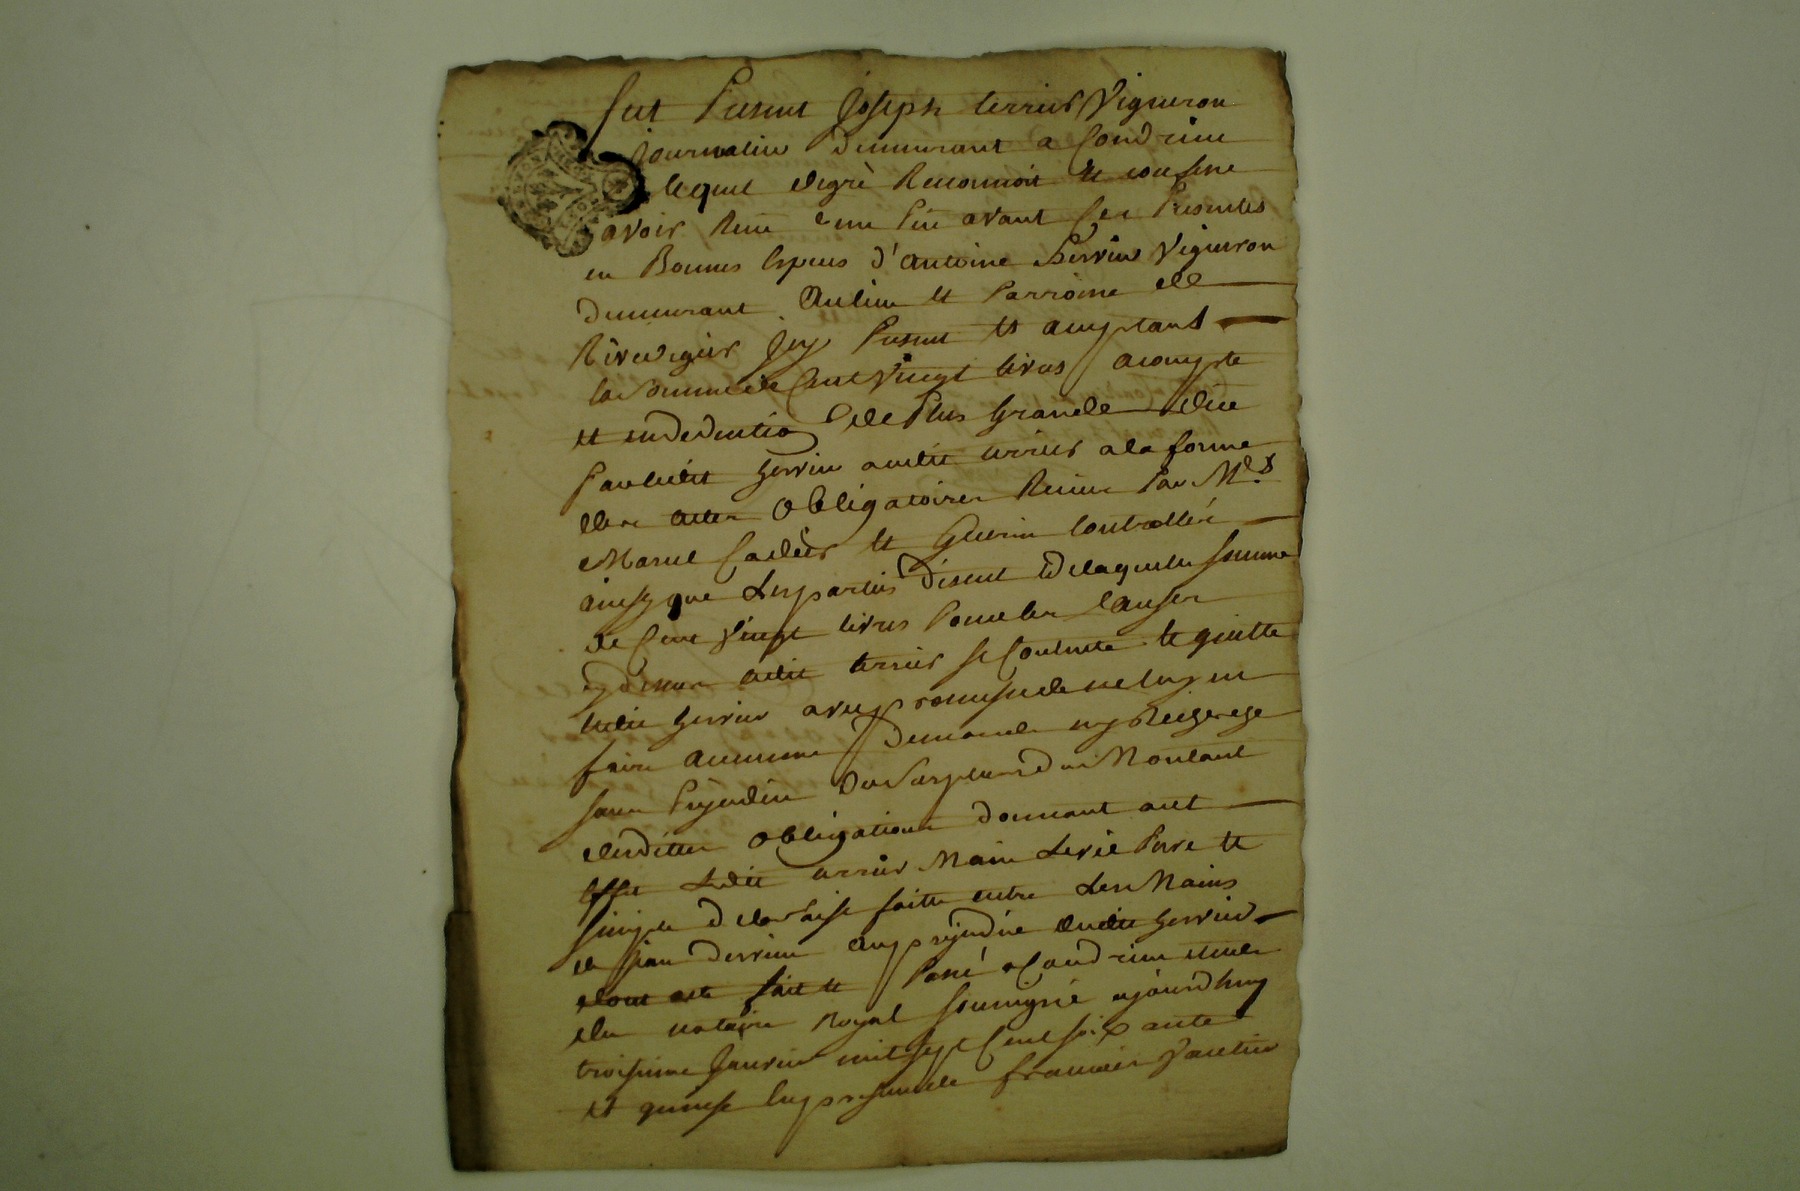 fut Présent Joseph terrier Vigneron
journalier demeurant a Condrieu
lequel degré Reconnoit et confesse
avoir Reçu cy avant ces Presentes
en Bonnes especes d'antoine Servie Vigneron
demeurant au lieu et Parroisse de
Rivedegier Icy Present et acceptant
la Somme de Cent Vingt livres acompte
et en deduction de Plus Grande due
Par ledit Servie audit terrier a la forme
des actes obligatoires Reçus Par Mes
Marel et Guerin Controllés
ainsy que les parties disent de laquelle somme
de Cent Vingt livres Pour les Causes
cy dessus ledit terrier se Contente et quitte
ledit Servie avec promesse de ne luy en
faire aucune demande ny Recherche
sans Prejudice du Surplus du Montant
desdittes obligations donnant acte
ledit terrier Main levée Pure et
simple de la saisie faitte entre les Mains
de Jean au prejudice dudit Servie
dont acte fait et Passé a Condrieu etude
du notaire Royal soussigné aujourdhuy
troisieme Janvier mil sept Cent soixante
et quinze En presence de francois